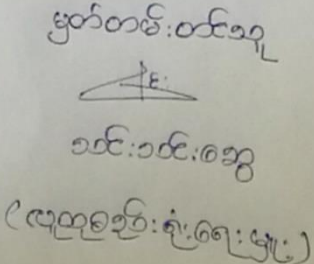 မှတ်တမ်းတင်သူ
သင်းသင်းဆွေ
(လူထုစည်းရုံးရေးမှူး)